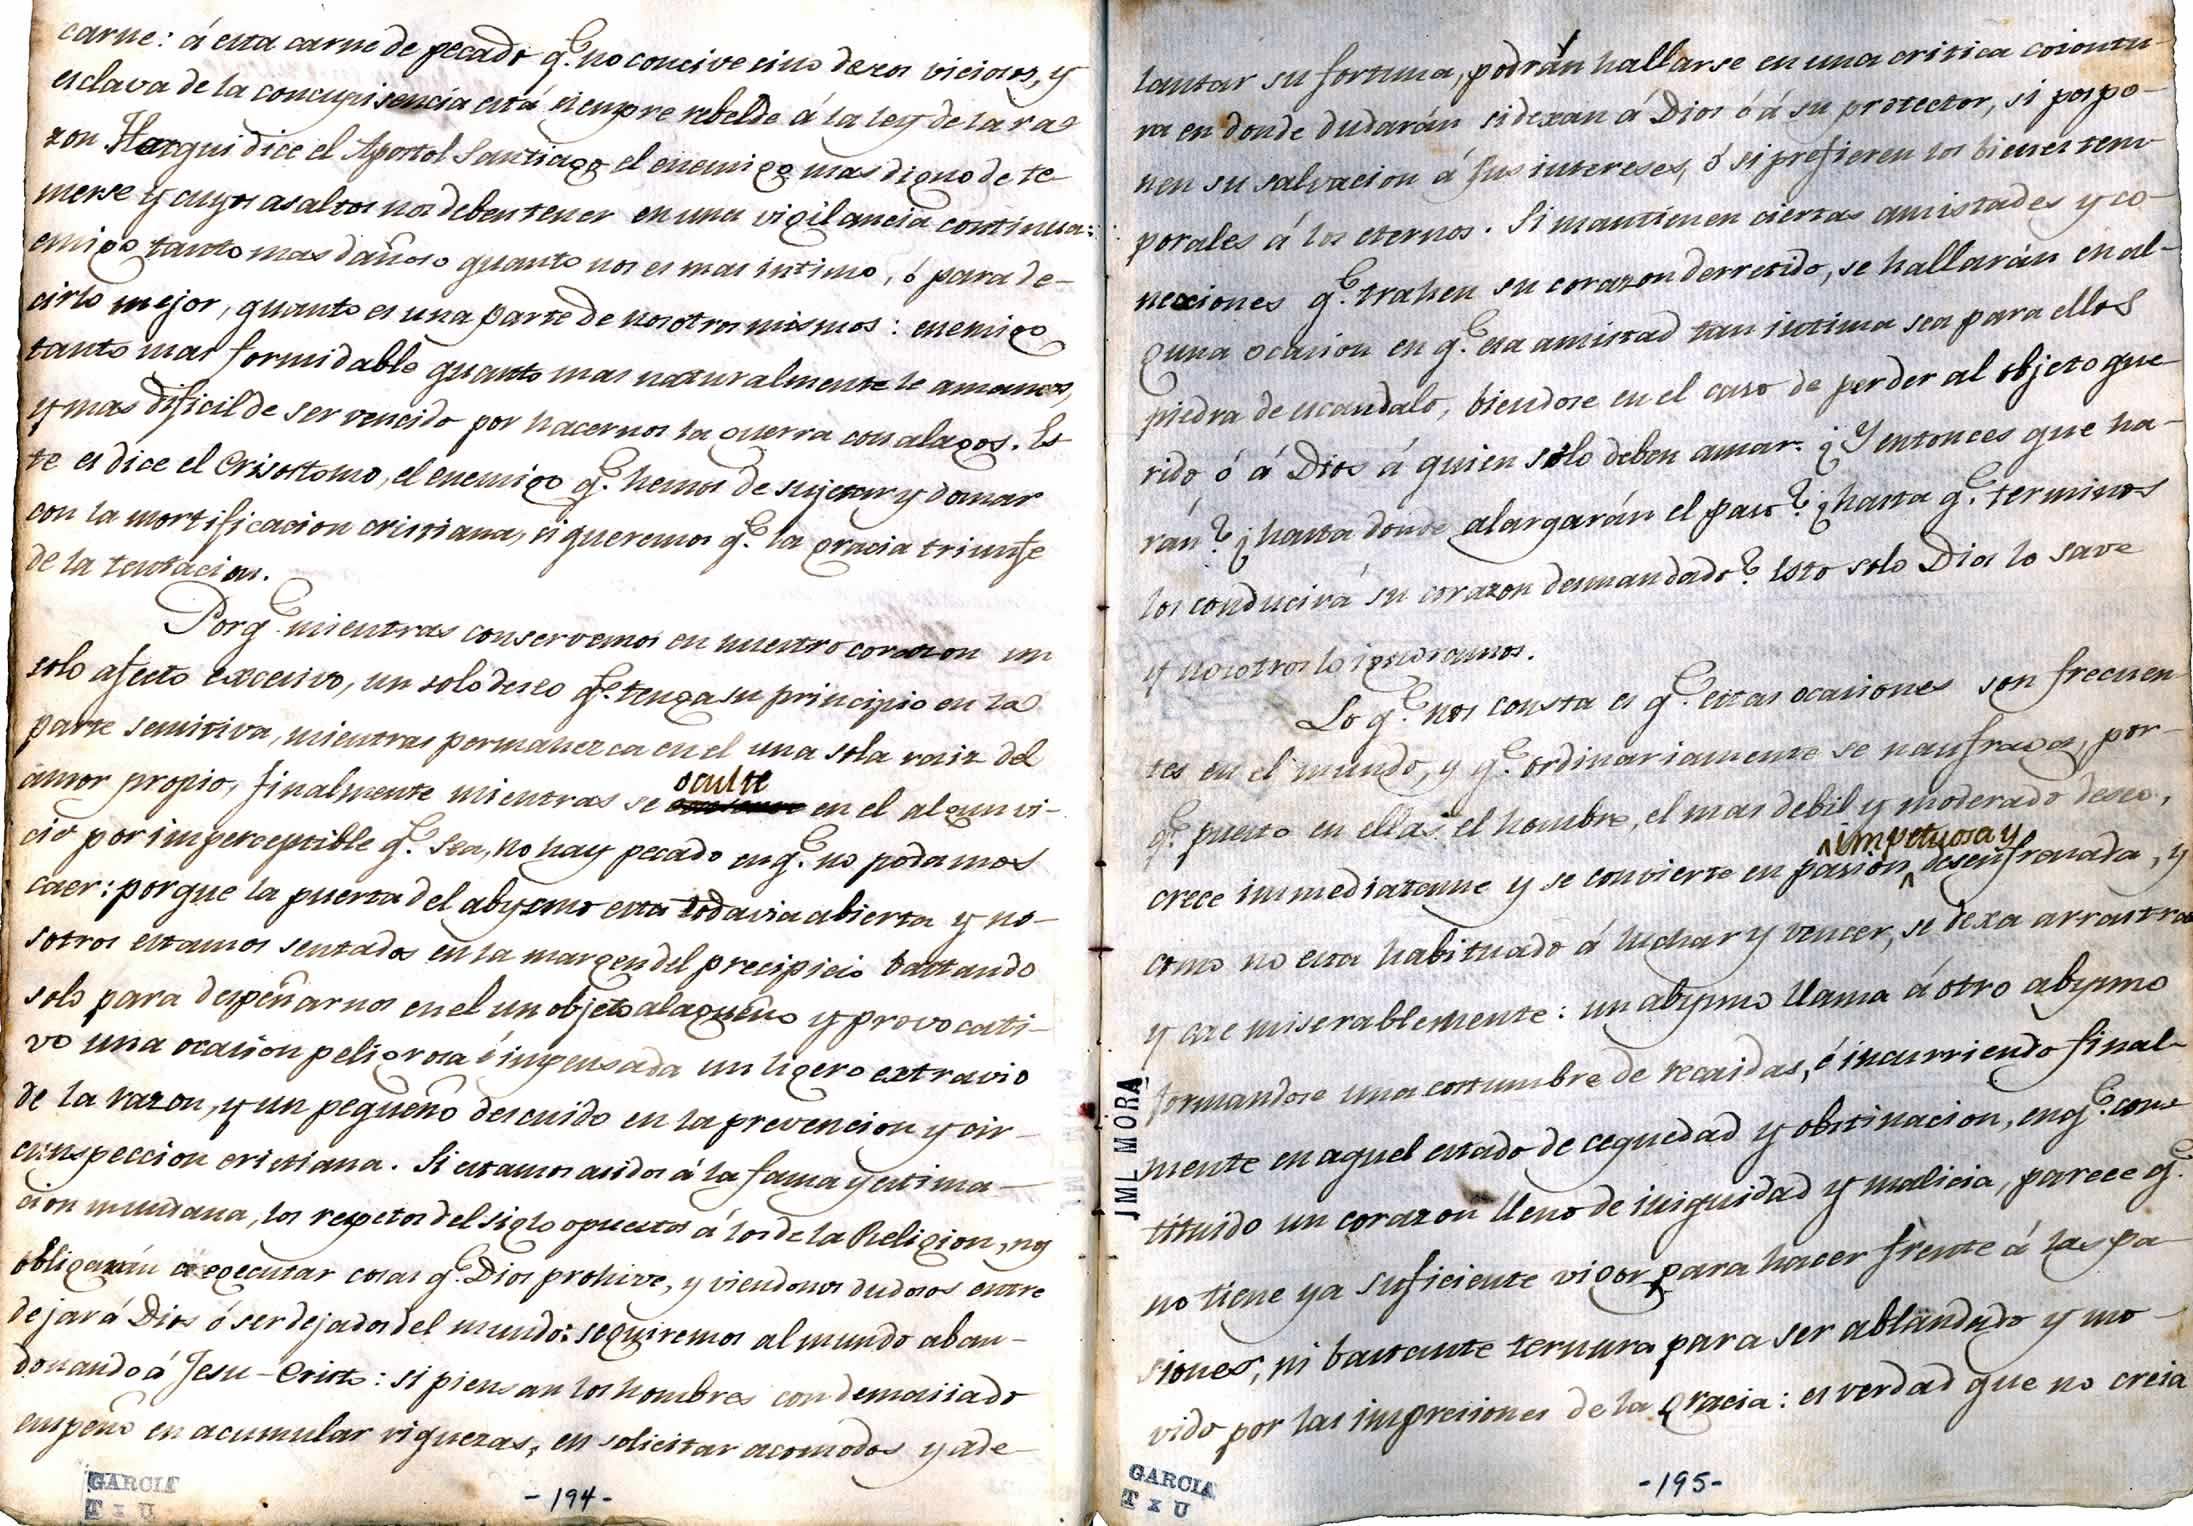 carne: á esta carne de pecado q.e no concive sino deseos viciosos, y
esclava de la concupisencia está siempre rebelde á la ley de la ra-
zon. He aqui dice el Apostol Santiago el enemigo mas digno de te-
merse y cuyos asaltos nos deben tener en una vigilancia continua:
emigo tanto mas dañoso quanto nos es mas intimo, ó para de-
cirlo mejor, quanto es una parte de nosotros mismos: enemigo
tanto mas formidable quanto mas naturalmente le amamos,
y mas dificil de ser vencido por hacernos la guerra con alagos. Es
te es dice el Crisostomo, el enemigo q.e hemos de sujetar y domar
con la mortificacion cristiana, si queremos q.e la gracia triunfe
de la tentacion.
Porq.e mientras conservemos en nuestro corazon un
solo afecto excesivo, un solo deseo q.e tenga su principio en la
parte sensitiva, mientras permanezca en el una sola raiz del
amor propio, finalmente mientras se oculte en el algun vi-
cio por imperceptible q.e sea, no hay pecado en q.e no podamos
caer: porque la puerta del abysmo esta todavia abierta y no-
sotros estamos sentados en la margen del precipicio bastando
solo para despeñarnos en el un objeto alagueño y provocati-
vo una ocasion peligrosa é impensada un ligero extravio
de la razon, y un pequeño descuido en la prevencion y cir-
cunspeccion cristiana. Si estamos asidos á la fama y estima-
cion mundana, los respetos del siglo opuestos á los de la Religion, nos
obligarán á egecutar cosas q.e Dios prohive, y viendonos dudosos entre
dejar á Dios ó ser dejados del mundo: seguiremos al mundo aban-
donando á Jesu-Cristo: si piensan los hombres con demasiado
empeño en acumular riquezas, en solicitar acomodos y ade-
GARCIA
T x U
-194-
lantar su fortuna, podrán hallarse en una critica coiontu-
ra en donde dudarán si dexan á Dios ó á su protector, si pospo-
nen su salvacion á sus intereses, ó si prefieren los bienes tem-
porales á los eternos. Si mantienen ciertas amistades y co-
nexiones q.e trahen su corazon derretido, se hallarán en al-
guna ocasion en q.e esa amistad tan intima sea para ellos
piedra de escandalo, biendose en el caso de perder al objeto que-
rido ó á Dios á quien solo deben amar. ¿Y entonces que ha-
rán? ¿hasta donde alargarán el paso? ¿hasta q.e terminos
los conducirá su corazon desmandado? Esto solo Dios lo save
y nosotros lo ignoramos.
Lo q.e nos consta es q.e estas ocasiones son frecuen-
tes en el mundo, y q.e ordinariamente se naufraga, por-
q.e puesto en ellas el hombre, el mas debil y moderado deseo,
crece immediatame y se convierte en pasion impetuosa y desenfrenada, y
como no esta habituado á luchar y vencer, se dexa arrastrar
y cae miserablemente: un abysmo llama á otro abysmo
formandose una costumbre de recaidas, é incurriendo final-
mente en aquel estado de ceguedad y obstinacion, en q.e cons-
tituido un corazon lleno de iniquidad y malicia, parece q.e
no tiene ya suficiente vigor para hacer frente á las pa-
siones, ni bastante ternura para ser ablandado y mo-
vido por las impresiones de la gracia: es verdad que no creia
JML MORA
GARCIA
T x U
-195-